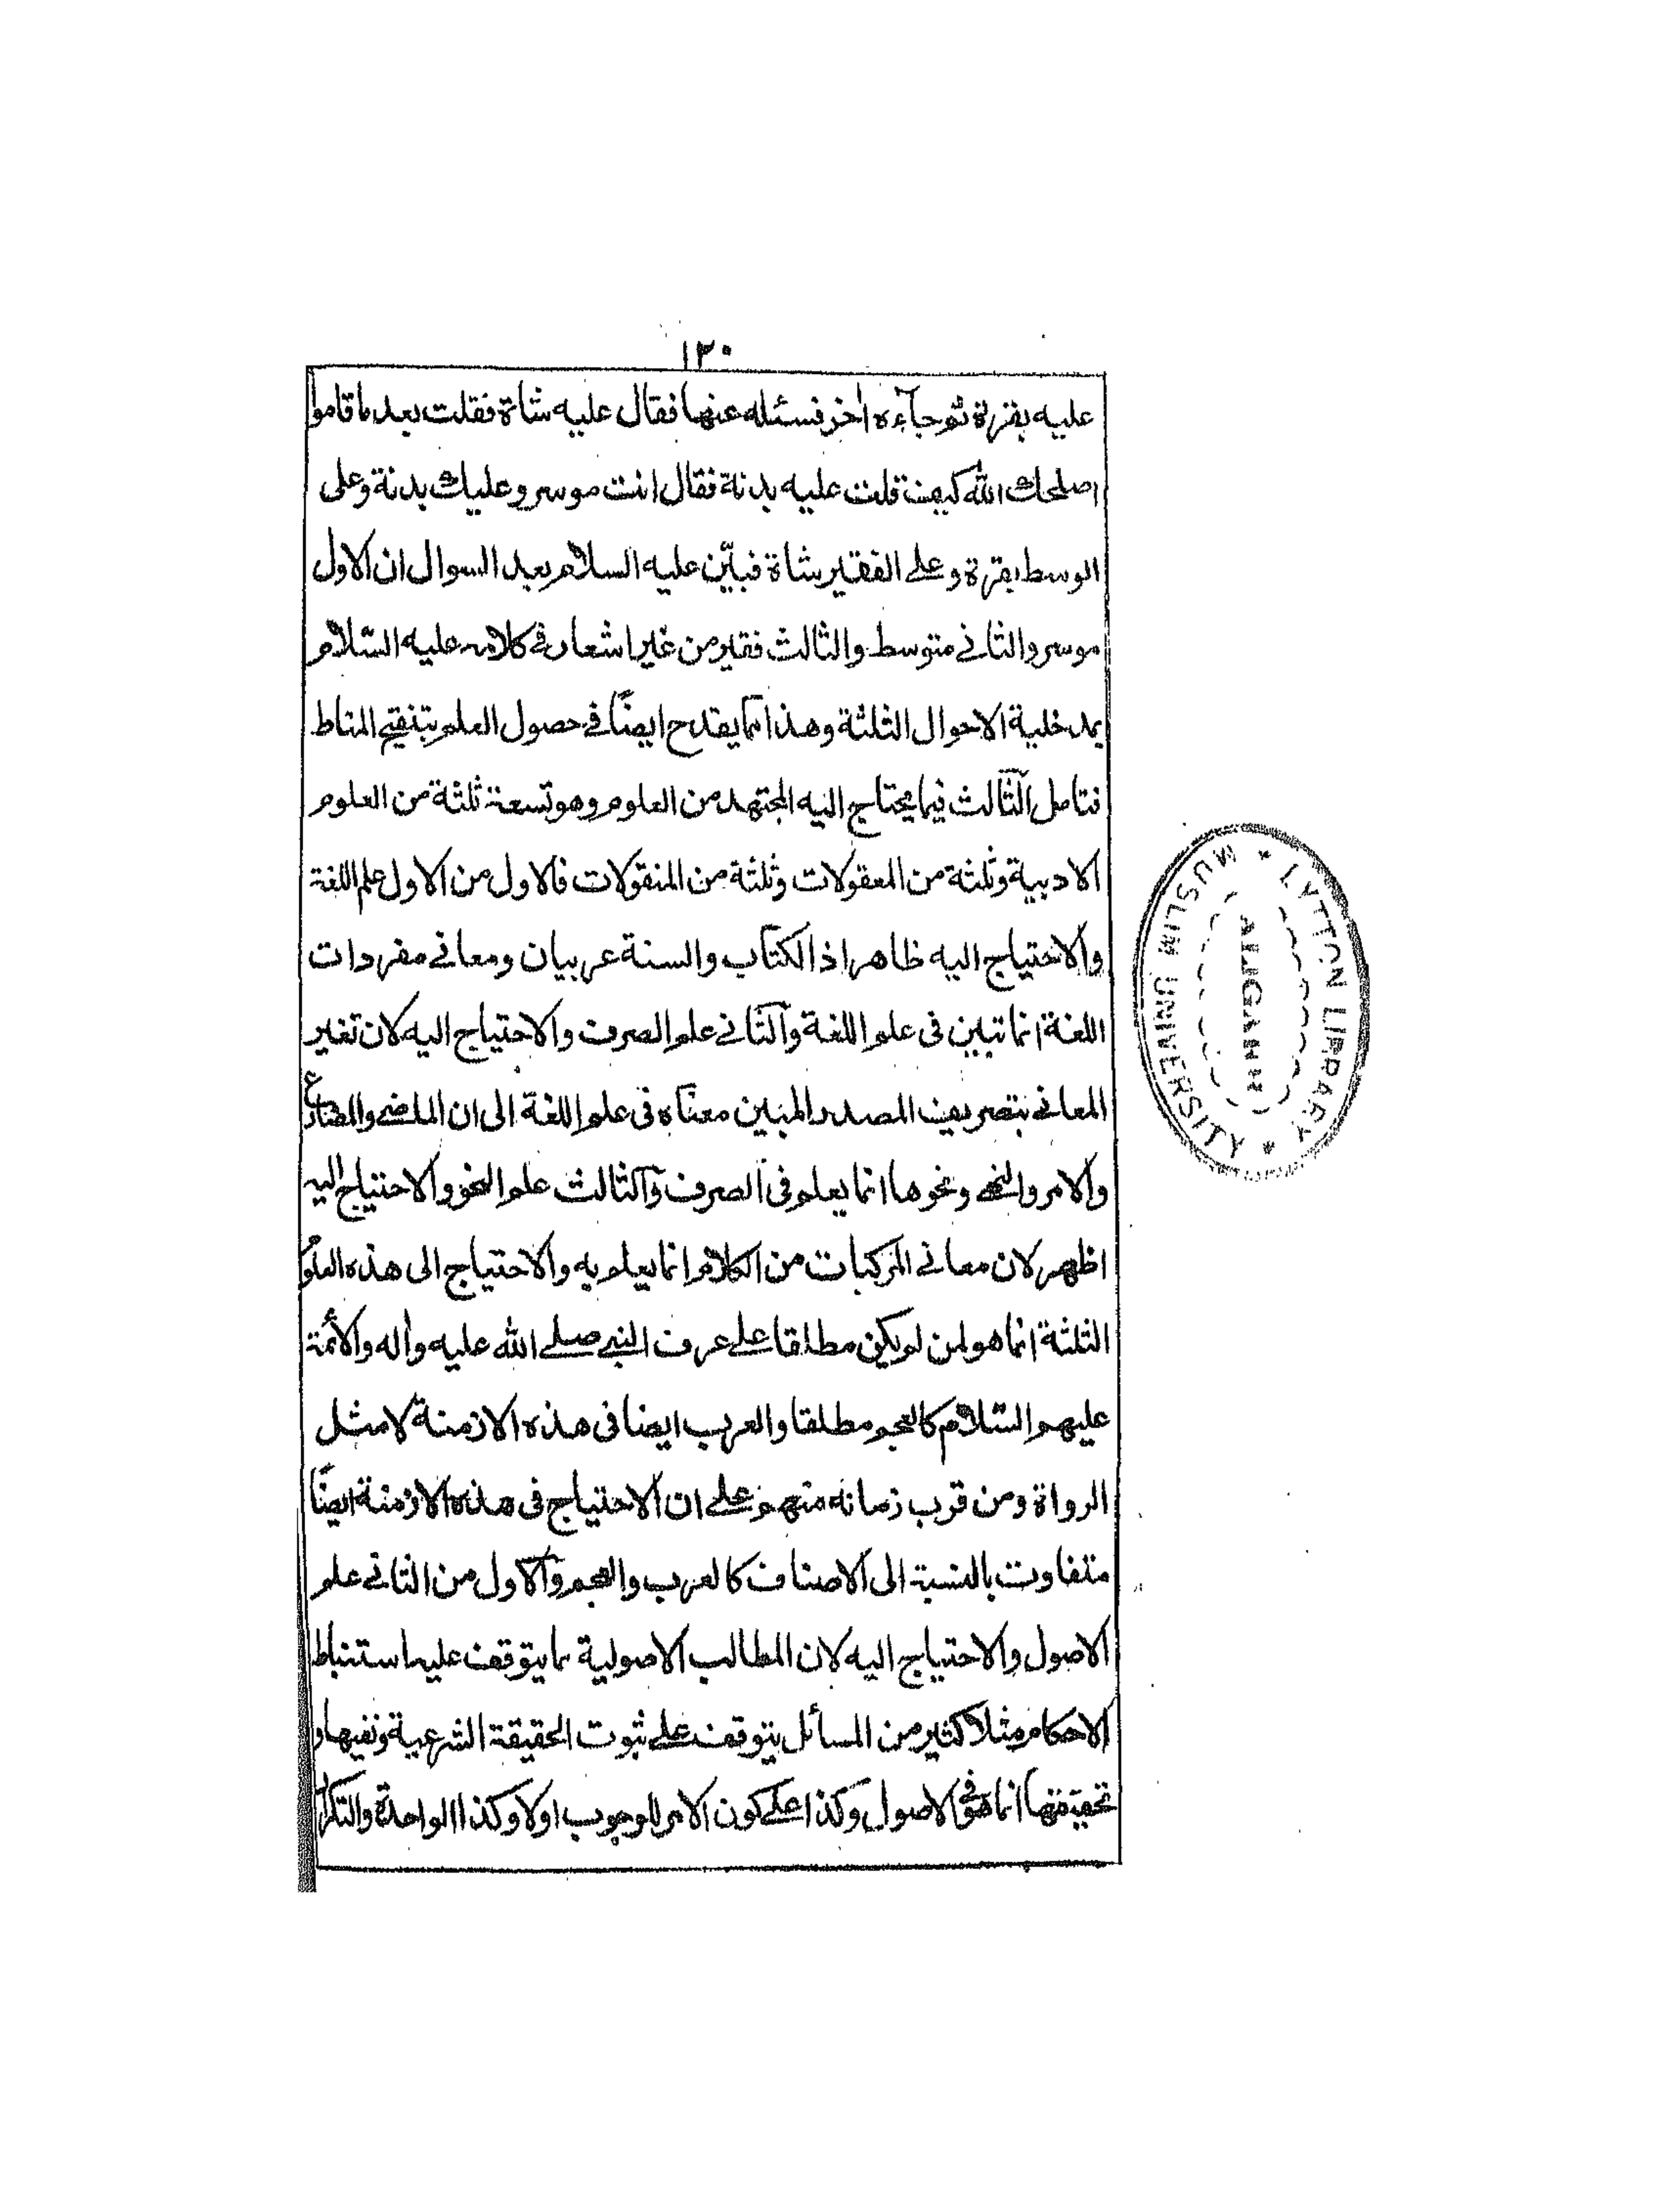 ۱۳۰
عليه بقرة ثم جآءه اٰخر فسئله عنها فقال عليه شاة فقلت بعد ما قاموا
اصلحك الله كيف قلت عليه بدنة فقال انت موسر وعليك بدنة وعلى
الوسط بقرة وعلى الفقير شاة فبيّن عليه السلام بعد السوال ان الاول
موسر والثانى متوسط والثالث فقير من غير اشعار فى كلامه عليه السّلام
بمدخلية الاحوال الثلثة وهذا مما يقدح ايضًا فى حصول العلم بتنقيح المناط
فتامل الثّالث فيما يحتاج اليه المجتهد من العلوم وهو تسعة ثلثة من العلوم
الادبية وثلثة من المعقولات وثلثة من المنقولات فالاول من الاول علم اللغة
والاحتياج اليه ظاهر اذ الكتاب والسنة عربيان ومعانى مفردات
اللغة انما تبين فى علم اللغة والثانى علم الصرف والاحتياج اليه لان تغير
المعانى بتصريف المصدر المبين معناه فى علم اللغة الى ان الماضى والمضارع
والامر والنهى ونحوها انما يعلم فى الصرف والثالث علم النحو والاحتياج اليه
اظهر لان معانى المركبات من الكلام انما يعلم به والاحتياج الى هذه العلوم
الثلثة انما هو لمن لم يكن مطلقا على عرف النبى صلى الله عليه واٰله والأئمة
عليهم السّلام كالعجم مطلقا والعرب ايضا فى هذه الازمنة لا مثل
الرواة ومن قرب زمانه منهم على ان الاحتياج فى هذه الازمنة ايضًا
متفاوت بالنسبة الى الاصناف كالعرب والعجم والاول من الثانى علم
الاصول والاحتياج اليه لان المطالب الاصولية مما يتوقف عليها استنباط
الاحكام مثلا كثير من المسائل يتوقف على ثبوت الحقيقة الشرعية ونفيها و
تحقيقها انما هو فى الاصول وكذا على كون الامر للوجوب اولا وكذا الواحدة والتكرار
MUSLIM UNIVERSITY * LYTTON LIBRARY *
ALIGARH